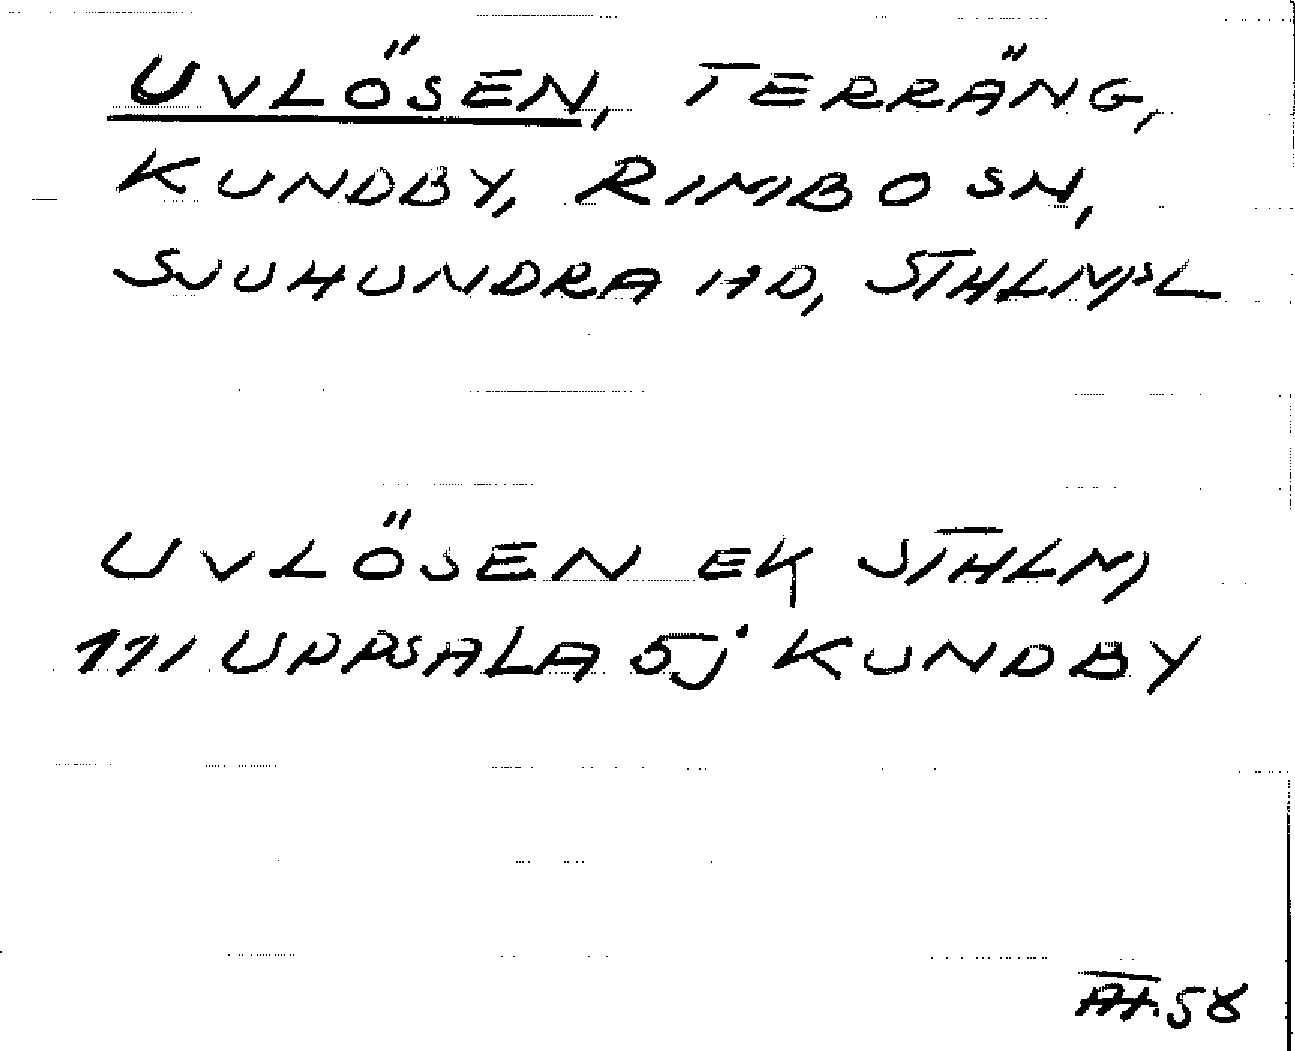 UVLÖSEN, TERRÄNG,
KUNDBY, RIMBO SN,
SJUHUNDRA HD, STHLMSL
UVLÖSEN EK STHLM,
111 UPPSALA 5j KUNDBY
58